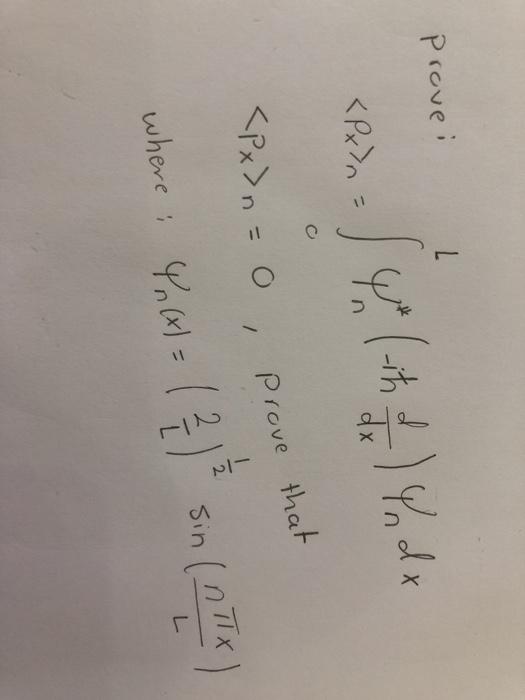 prove:
<Px>n = ∫₀ᴸ Ψn* (-iħ d/dx) Ψn dx
<Px>n = 0 , prove that
where ; Ψn(x) = (2/L)^1/2 sin(nπx/L)